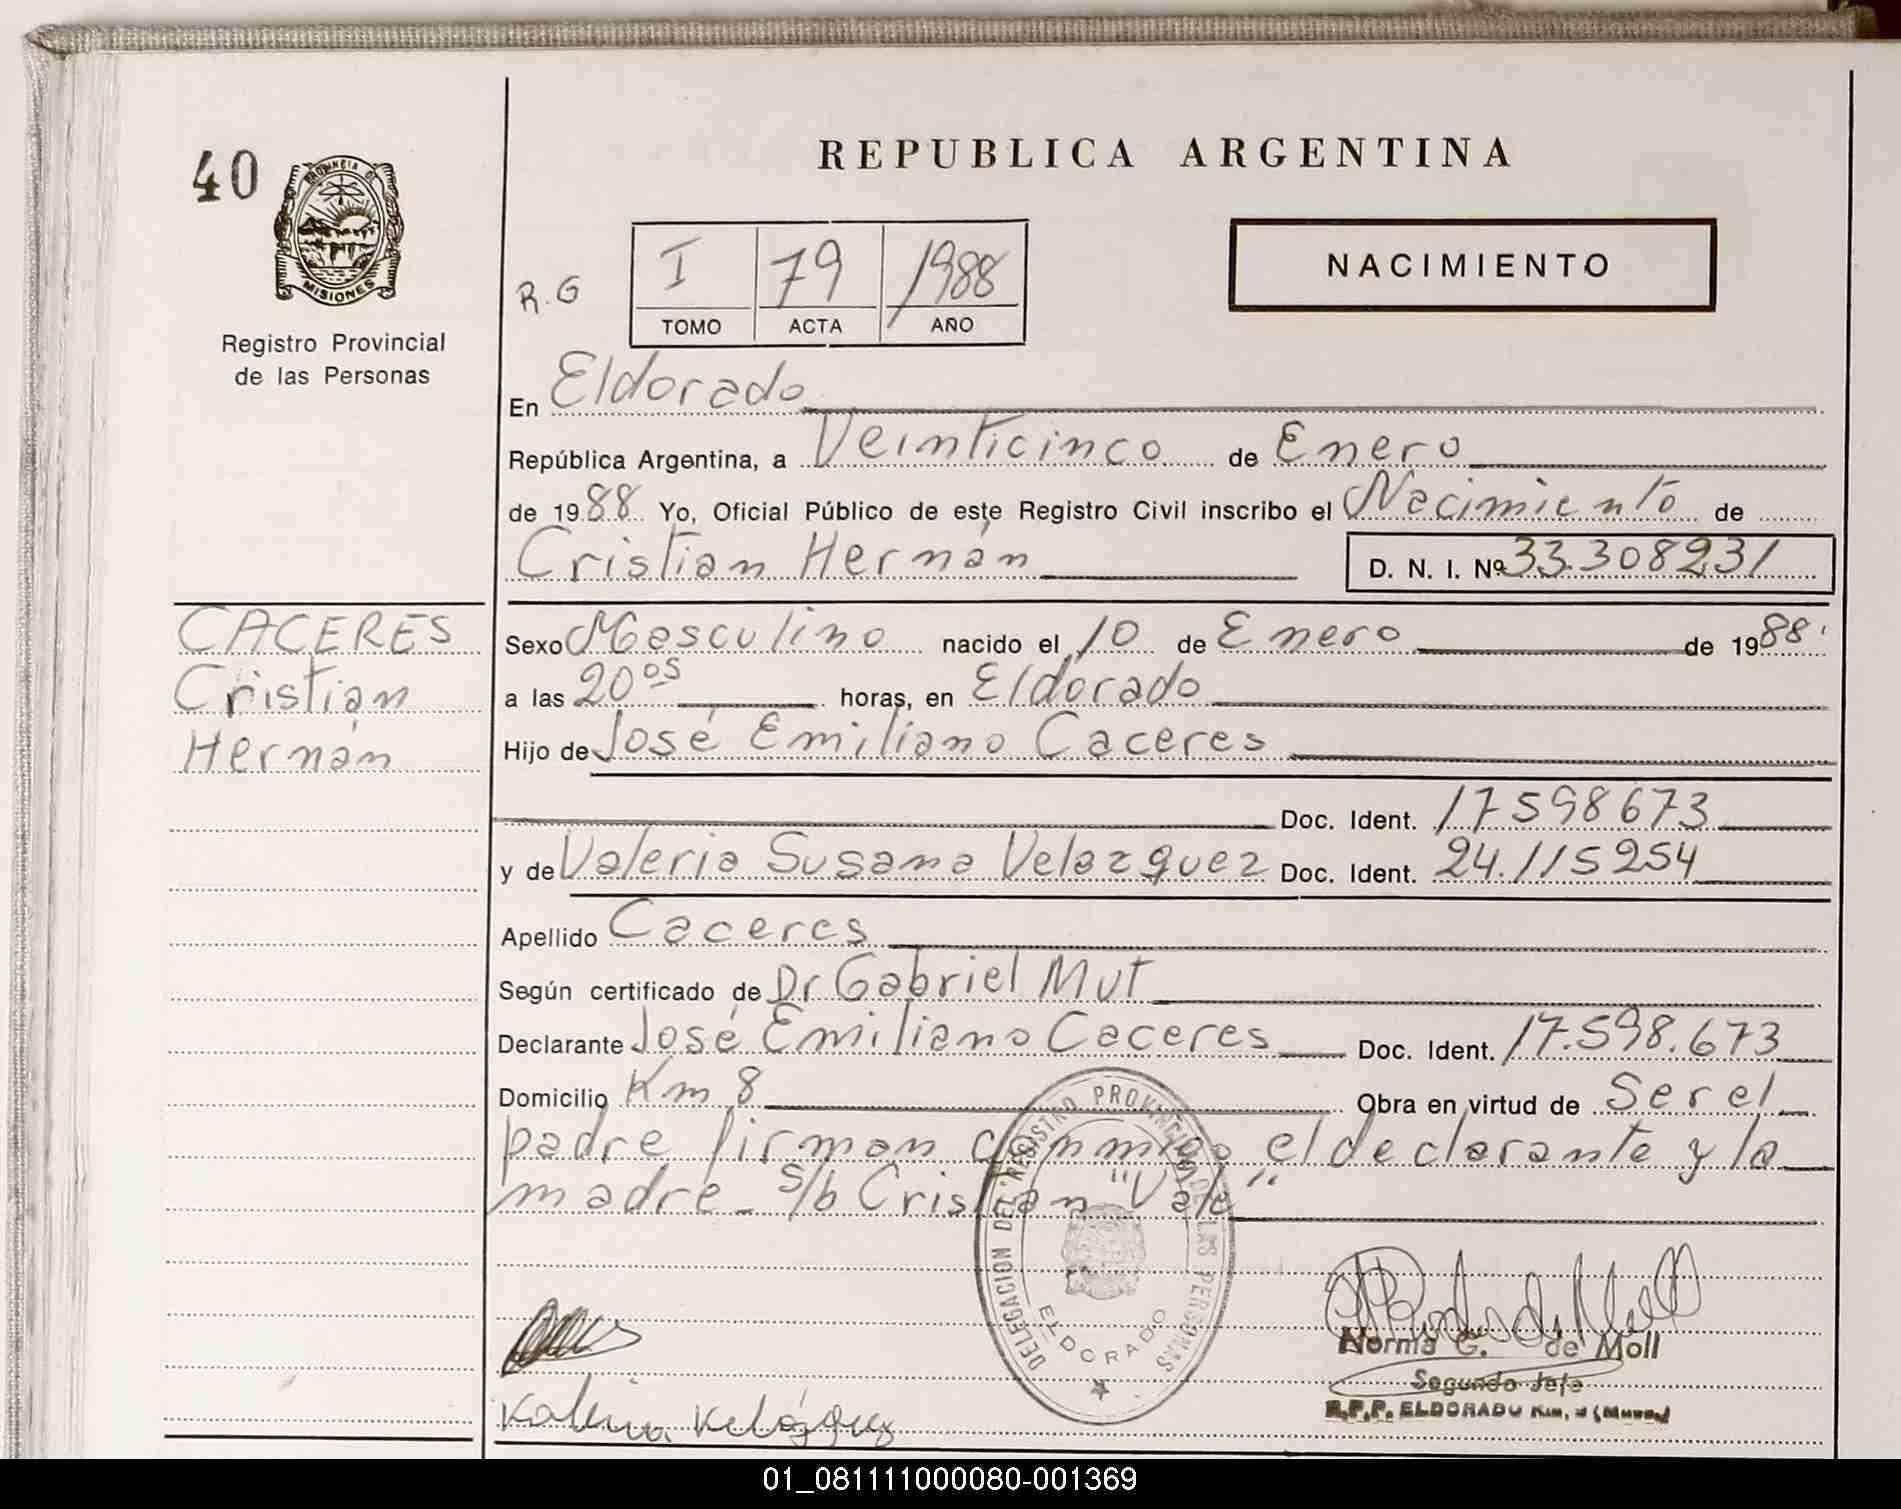 40
PROVINCIA DE
MISIONES
Registro Provincial
de las Personas
REPUBLICA ARGENTINA
NACIMIENTO
R.G
I 79 1988
TOMO ACTA AÑO
En Eldorado
República Argentina, a Veinticinco de Enero
de 1988 Yo, Oficial Público de este Registro Civil inscribo el Nacimiento de
Cristian Hernán D. N. I. Nº 33.308231
CACERES
Cristian
Hernán
Sexo Masculino nacido el 10 de Enero de 1988
a las 20 05 horas, en Eldorado
Hijo de José Emiliano Caceres
Doc. Ident. 17598673
y de Valeria Susana Velazquez Doc. Ident. 24.115254
Apellido Caceres
Según certificado de Dr Gabriel Mut
Declarante José Emiliano Caceres Doc. Ident. 17.598.673
Domicilio Km 8 Obra en virtud de Ser el
padre firman conmigo el declarante y la
madre_ S/b Cristian "Vale"
DELEGACION DEL REGISTRO PROVINCIAL DE LAS PERSONAS
ELDORADO
Norma G. de Moll
Segundo Jefe
R.P.P. ELDORADO Km.
01_081111000080-001369